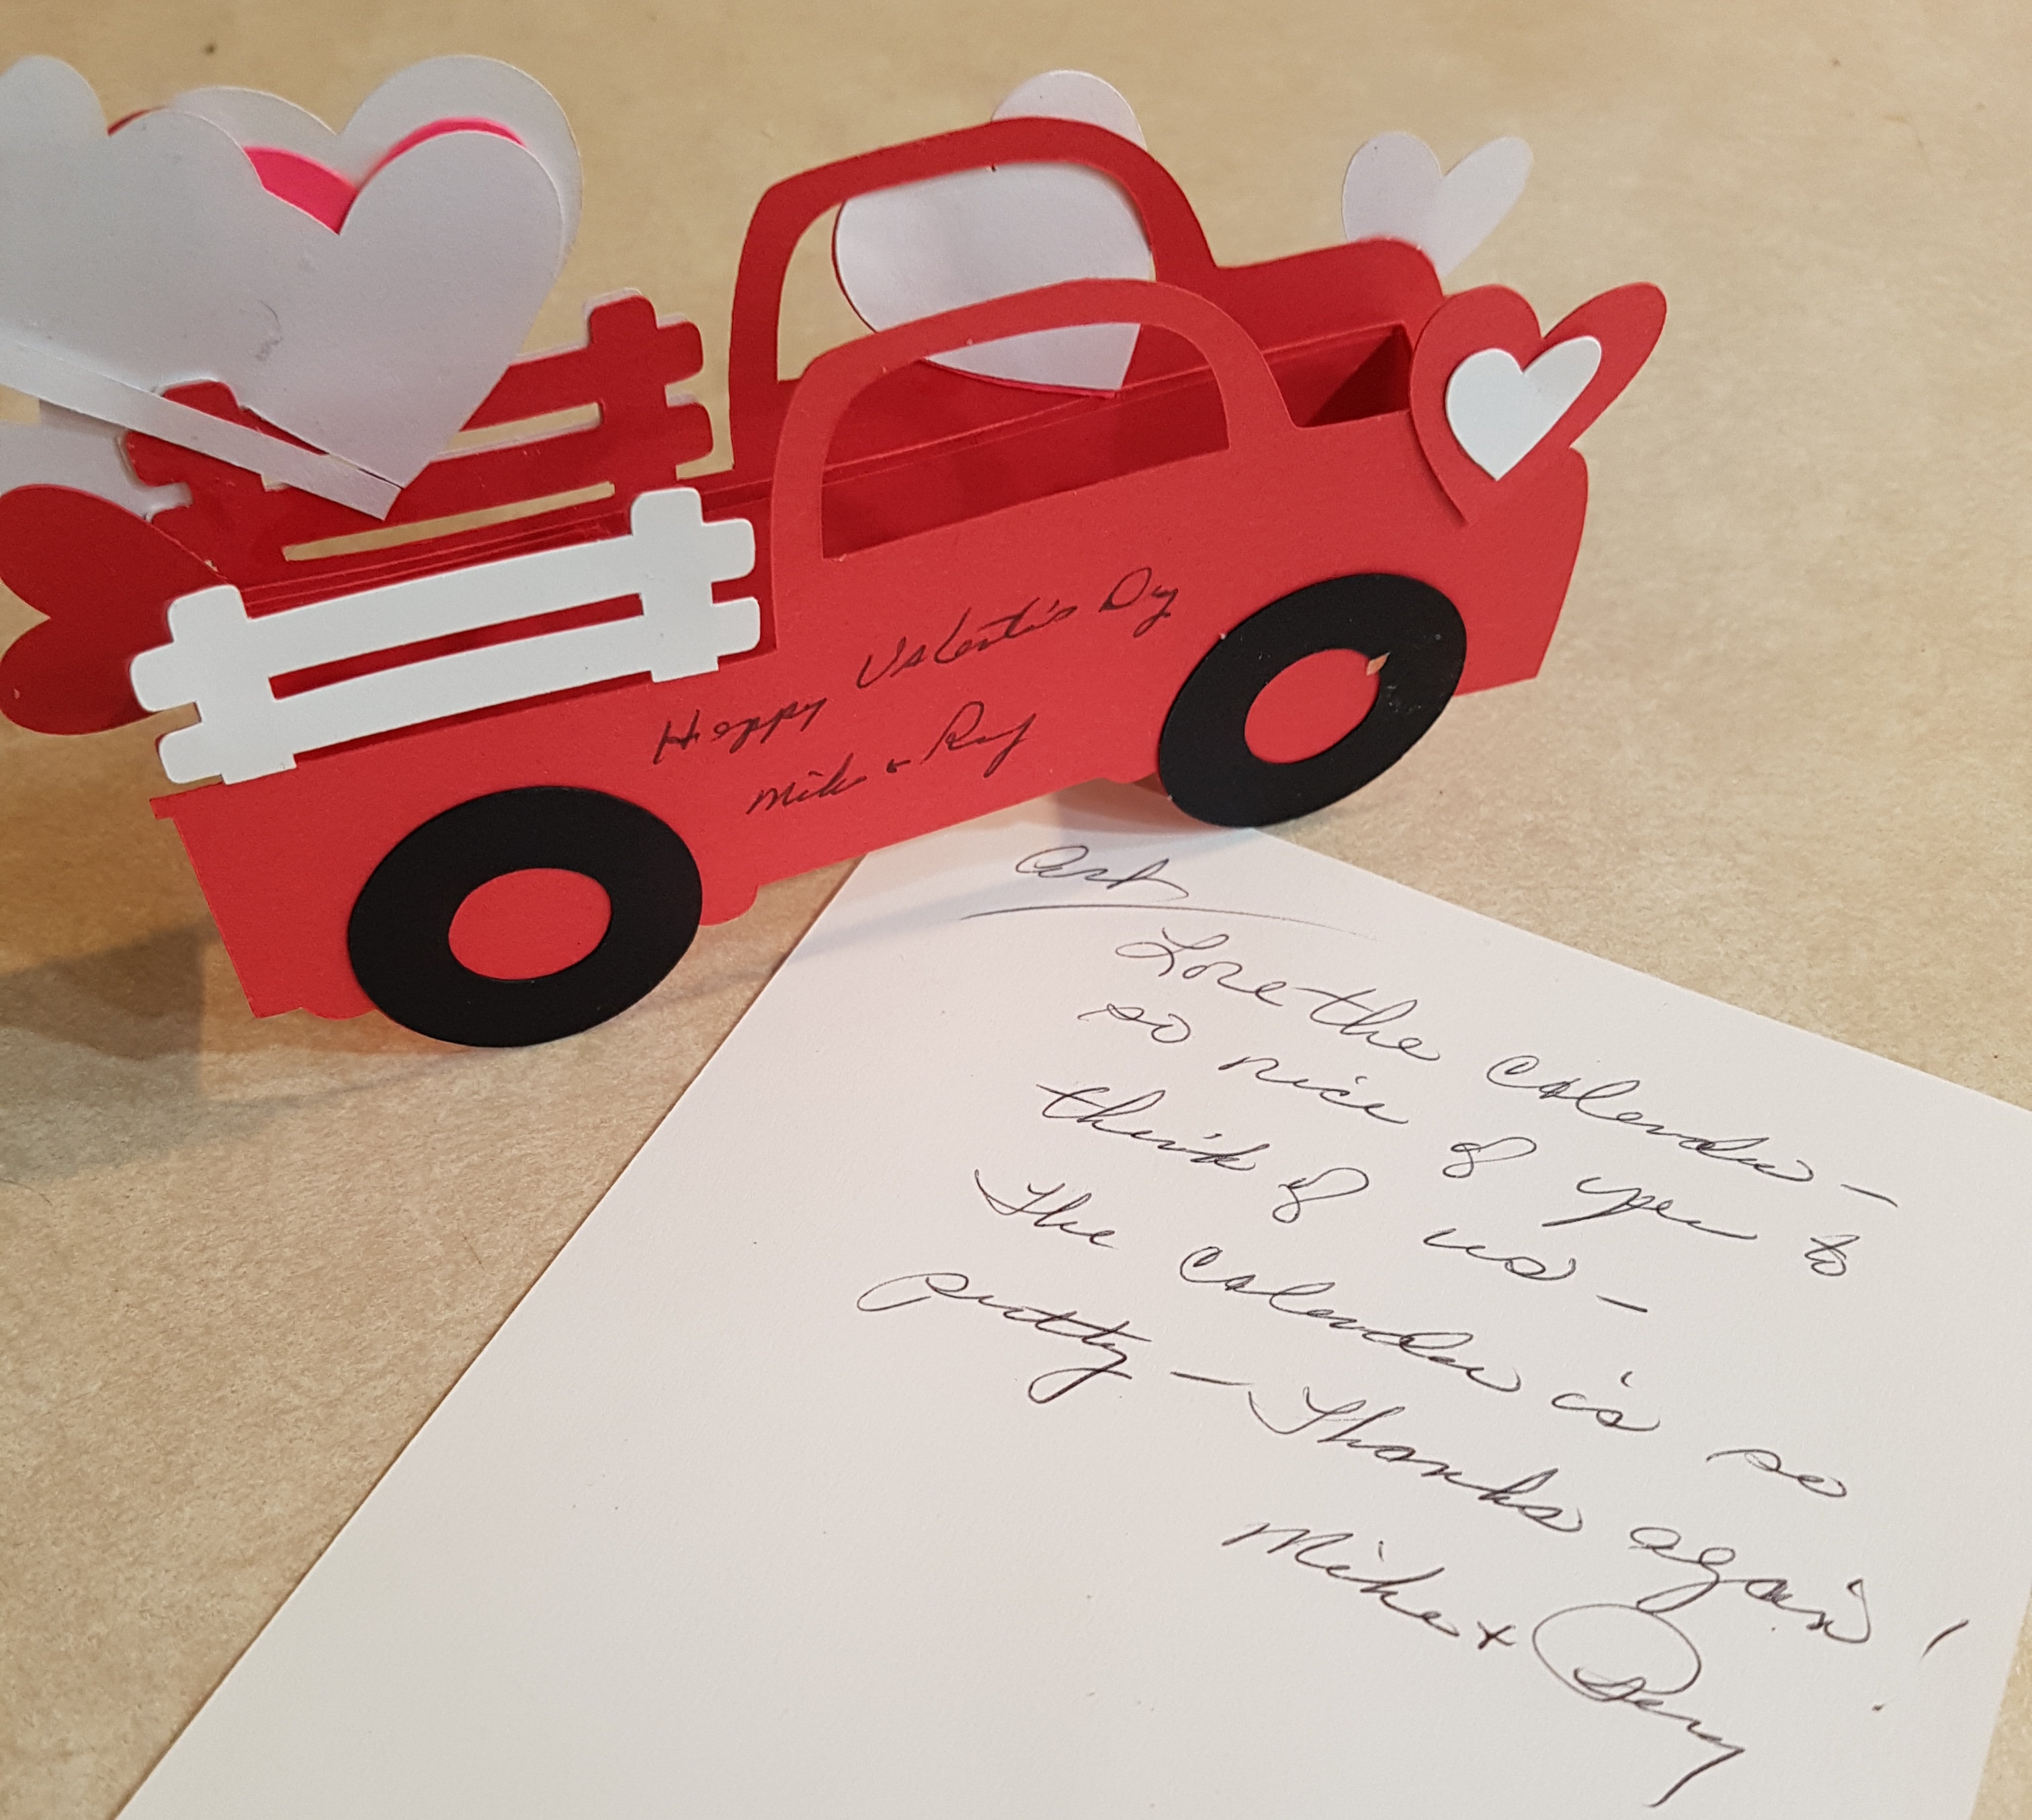 Happy Valentine's Day
Mike &
Art
Love the calendar -
so nice of you to
think of us -
The calendar is so
pretty - Thanks again!
Mike +